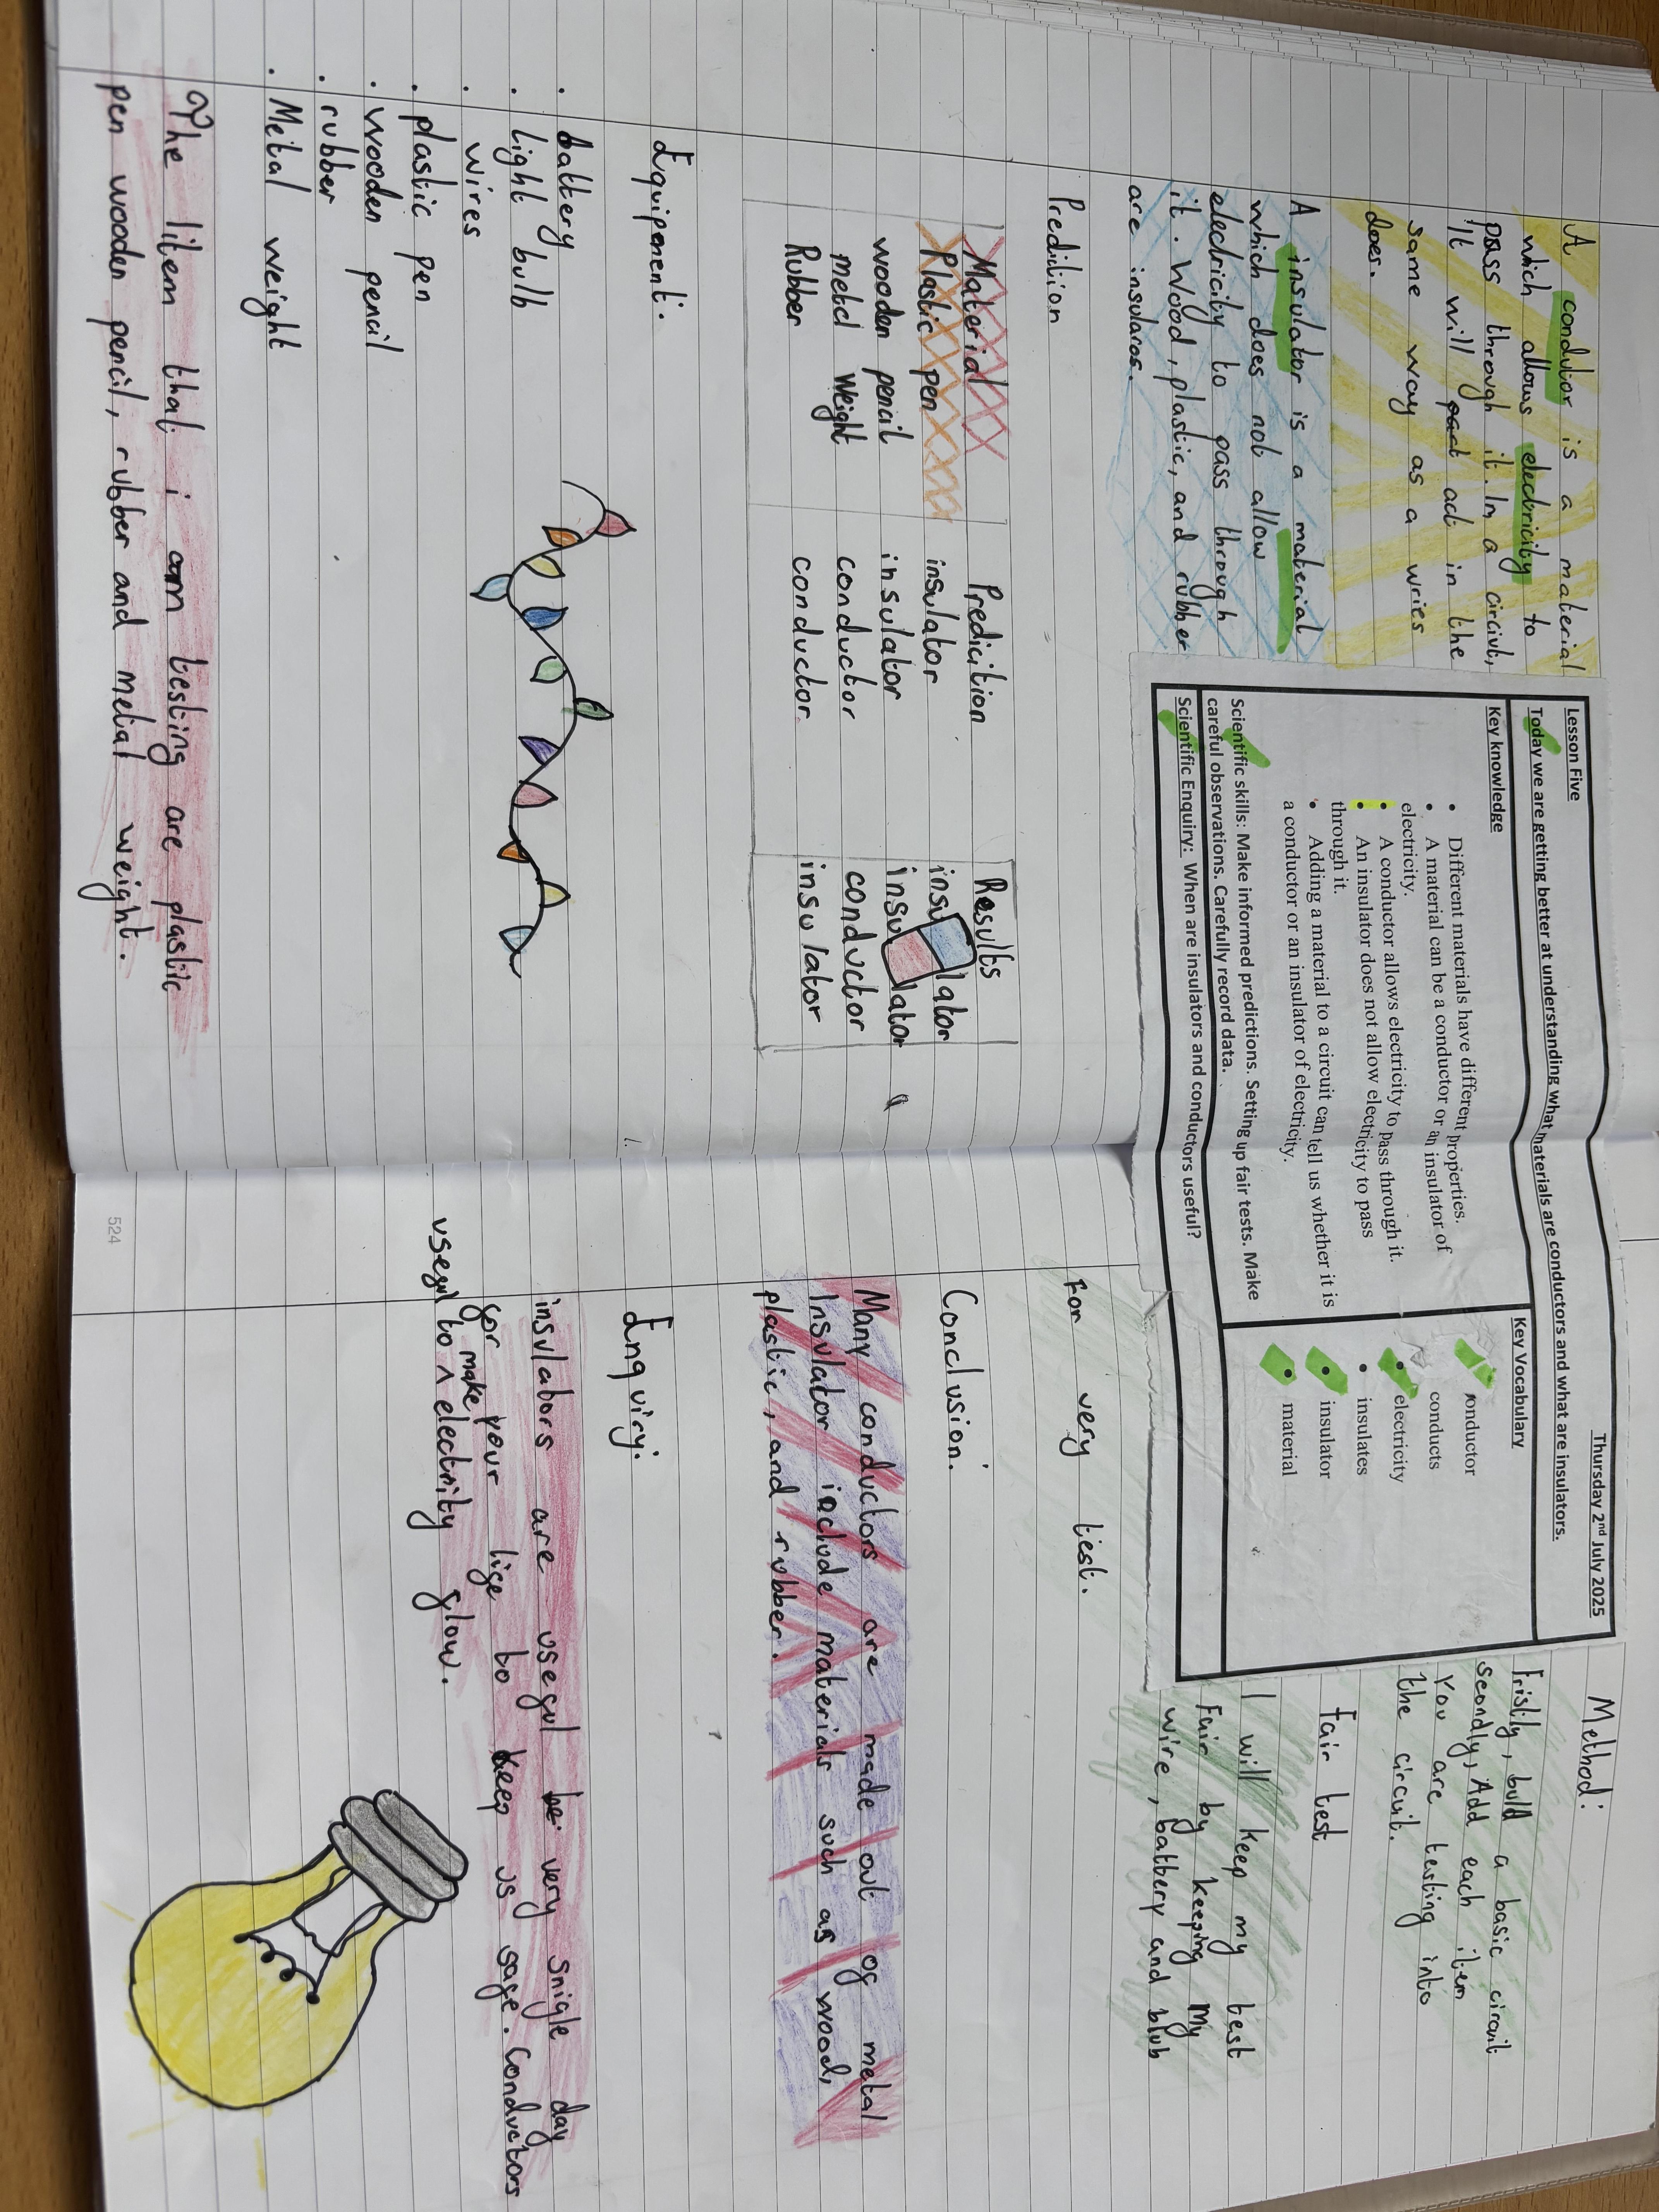 A condutior is a material
which allows electricity to
pass through it. In a circiut,
it will pact act in the
same way as a wries
does.
A insulator is a material
which does not allow
electricity to pass through
it. Wood, plastic, and rubber
are insularos.
Lesson Five
Thursday 2nd July 2025
Today we are getting better at understanding what materials are conductors and what are insulators.
Key knowledge
• Different materials have different properties.
• A material can be a conductor or an insulator of
electricity.
• A conductor allows electricity to pass through it.
• An insulator does not allow electricity to pass
through it.
• Adding a material to a circuit can tell us whether it is
a conductor or an insulator of electricity.
Key Vocabulary
• conductor
• conducts
• electricity
• insulates
• insulator
• material
Scientific skills: Make informed predictions. Setting up fair tests. Make
careful observations. Carefully record data.
Scientific Enquiry: When are insulators and conductors useful?
Predition
Material Predicition Results
Plastic pen insulator insulator
wooden pencil insulator insulator
metal weight conductor conductor
Rubber conductor insulator
Equipement:
• battery
• light bulb
• wires
• plastic pen
• wooden pencil
• rubber
• Metal weight
The litem that i am testing are plastic
pen wooden pencil, rubber and metial weight.
524
Method:
Fristly, buld a basic circuit
secondly, Add each item
You are testing into
the circuit.
Fair test
I will keep my test
Fair by keeping my
wire, battery and blub
For very test.
Conclusion.
Many conductors are made out og metal
Insulator include materials such as wood,
plastic, and rubber.
Enquiry:
insulators are usegul be very snigle day
gor your lige to keep us sage. conductors
usegul to make electrity glow.